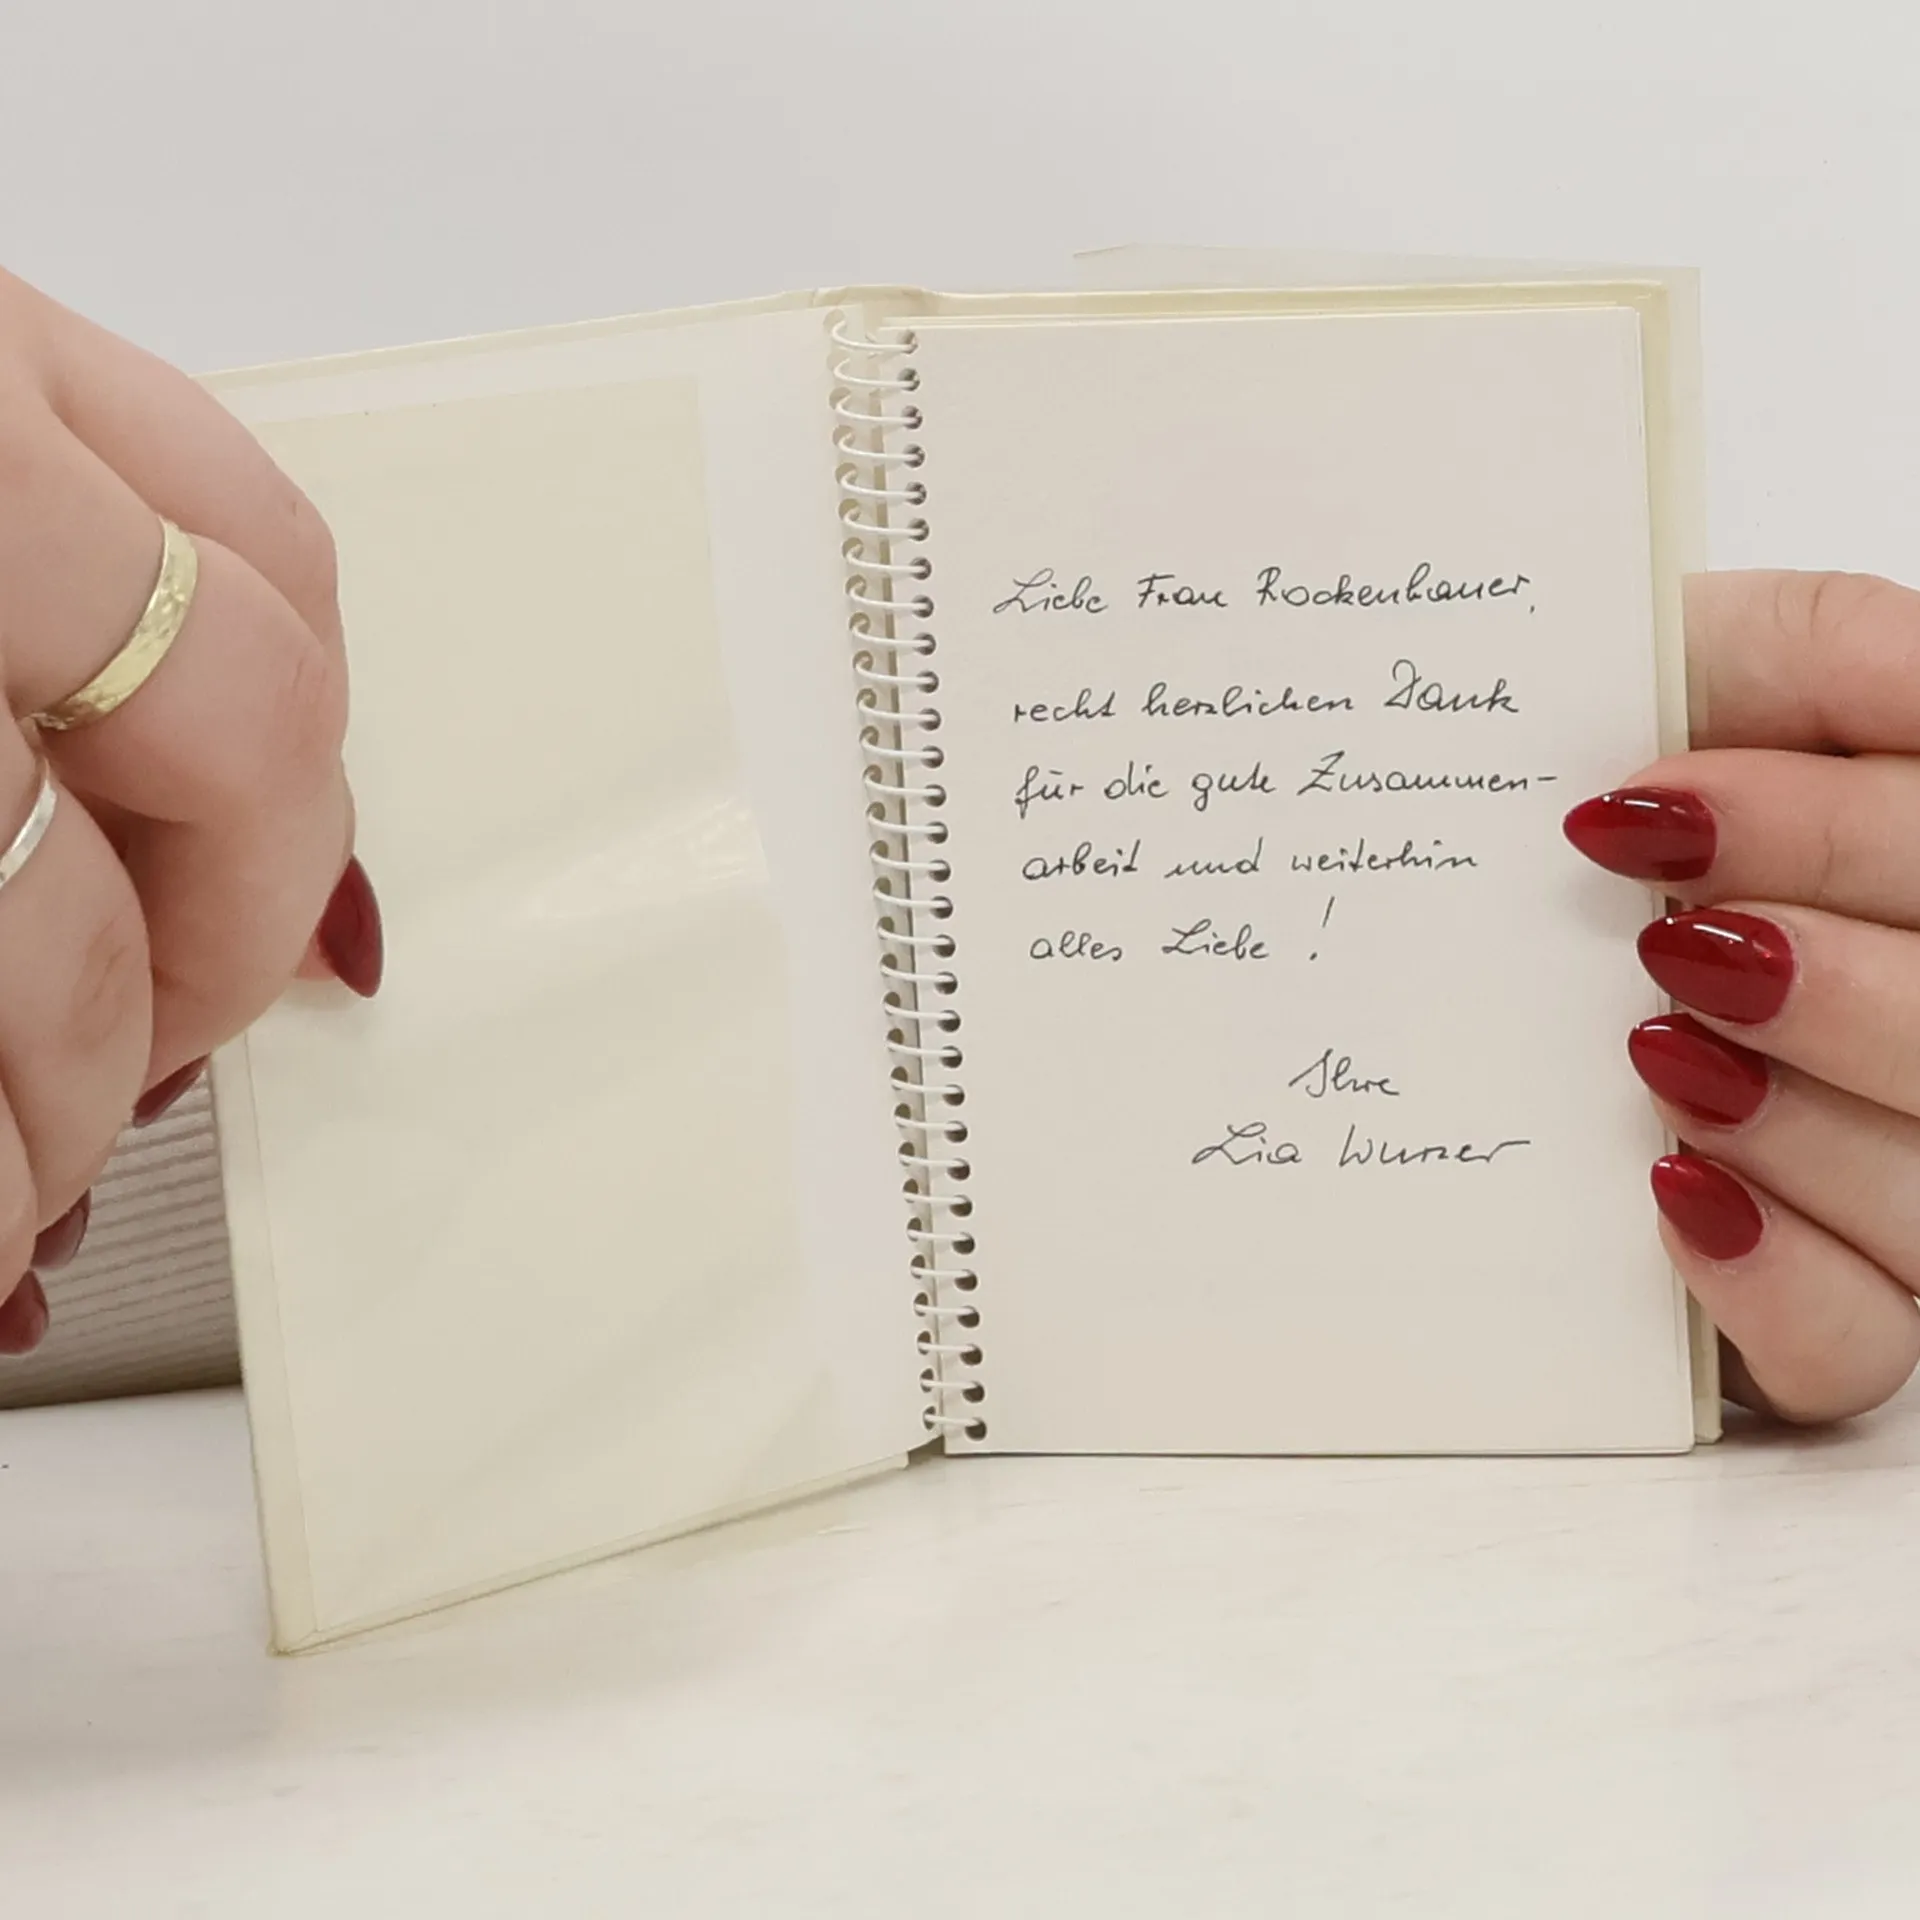 Liebe Frau Rockenbauer,
recht herzlichen Dank
für die gute Zusammen-
arbeit und weiterhin
alles Liebe !
Ihre
Lia Wurzer